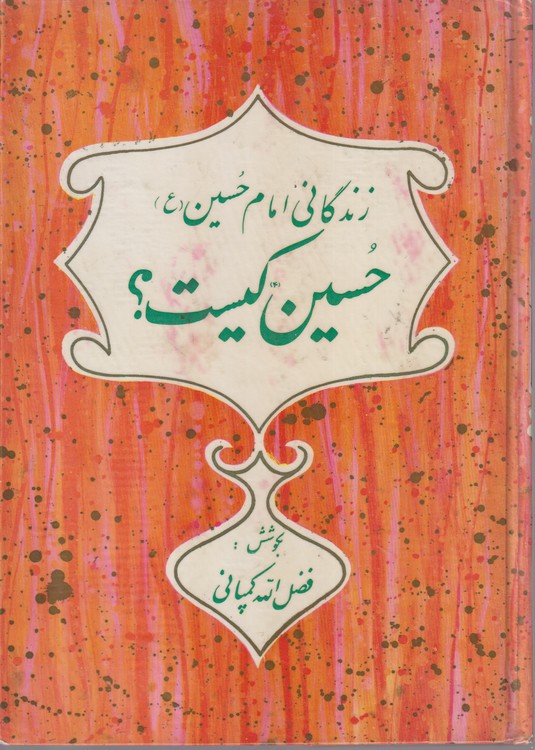 زندگانی امام حُسین (ع)
حُسین (ع) کیست؟
بکوشش :
فضل الله کمپانی